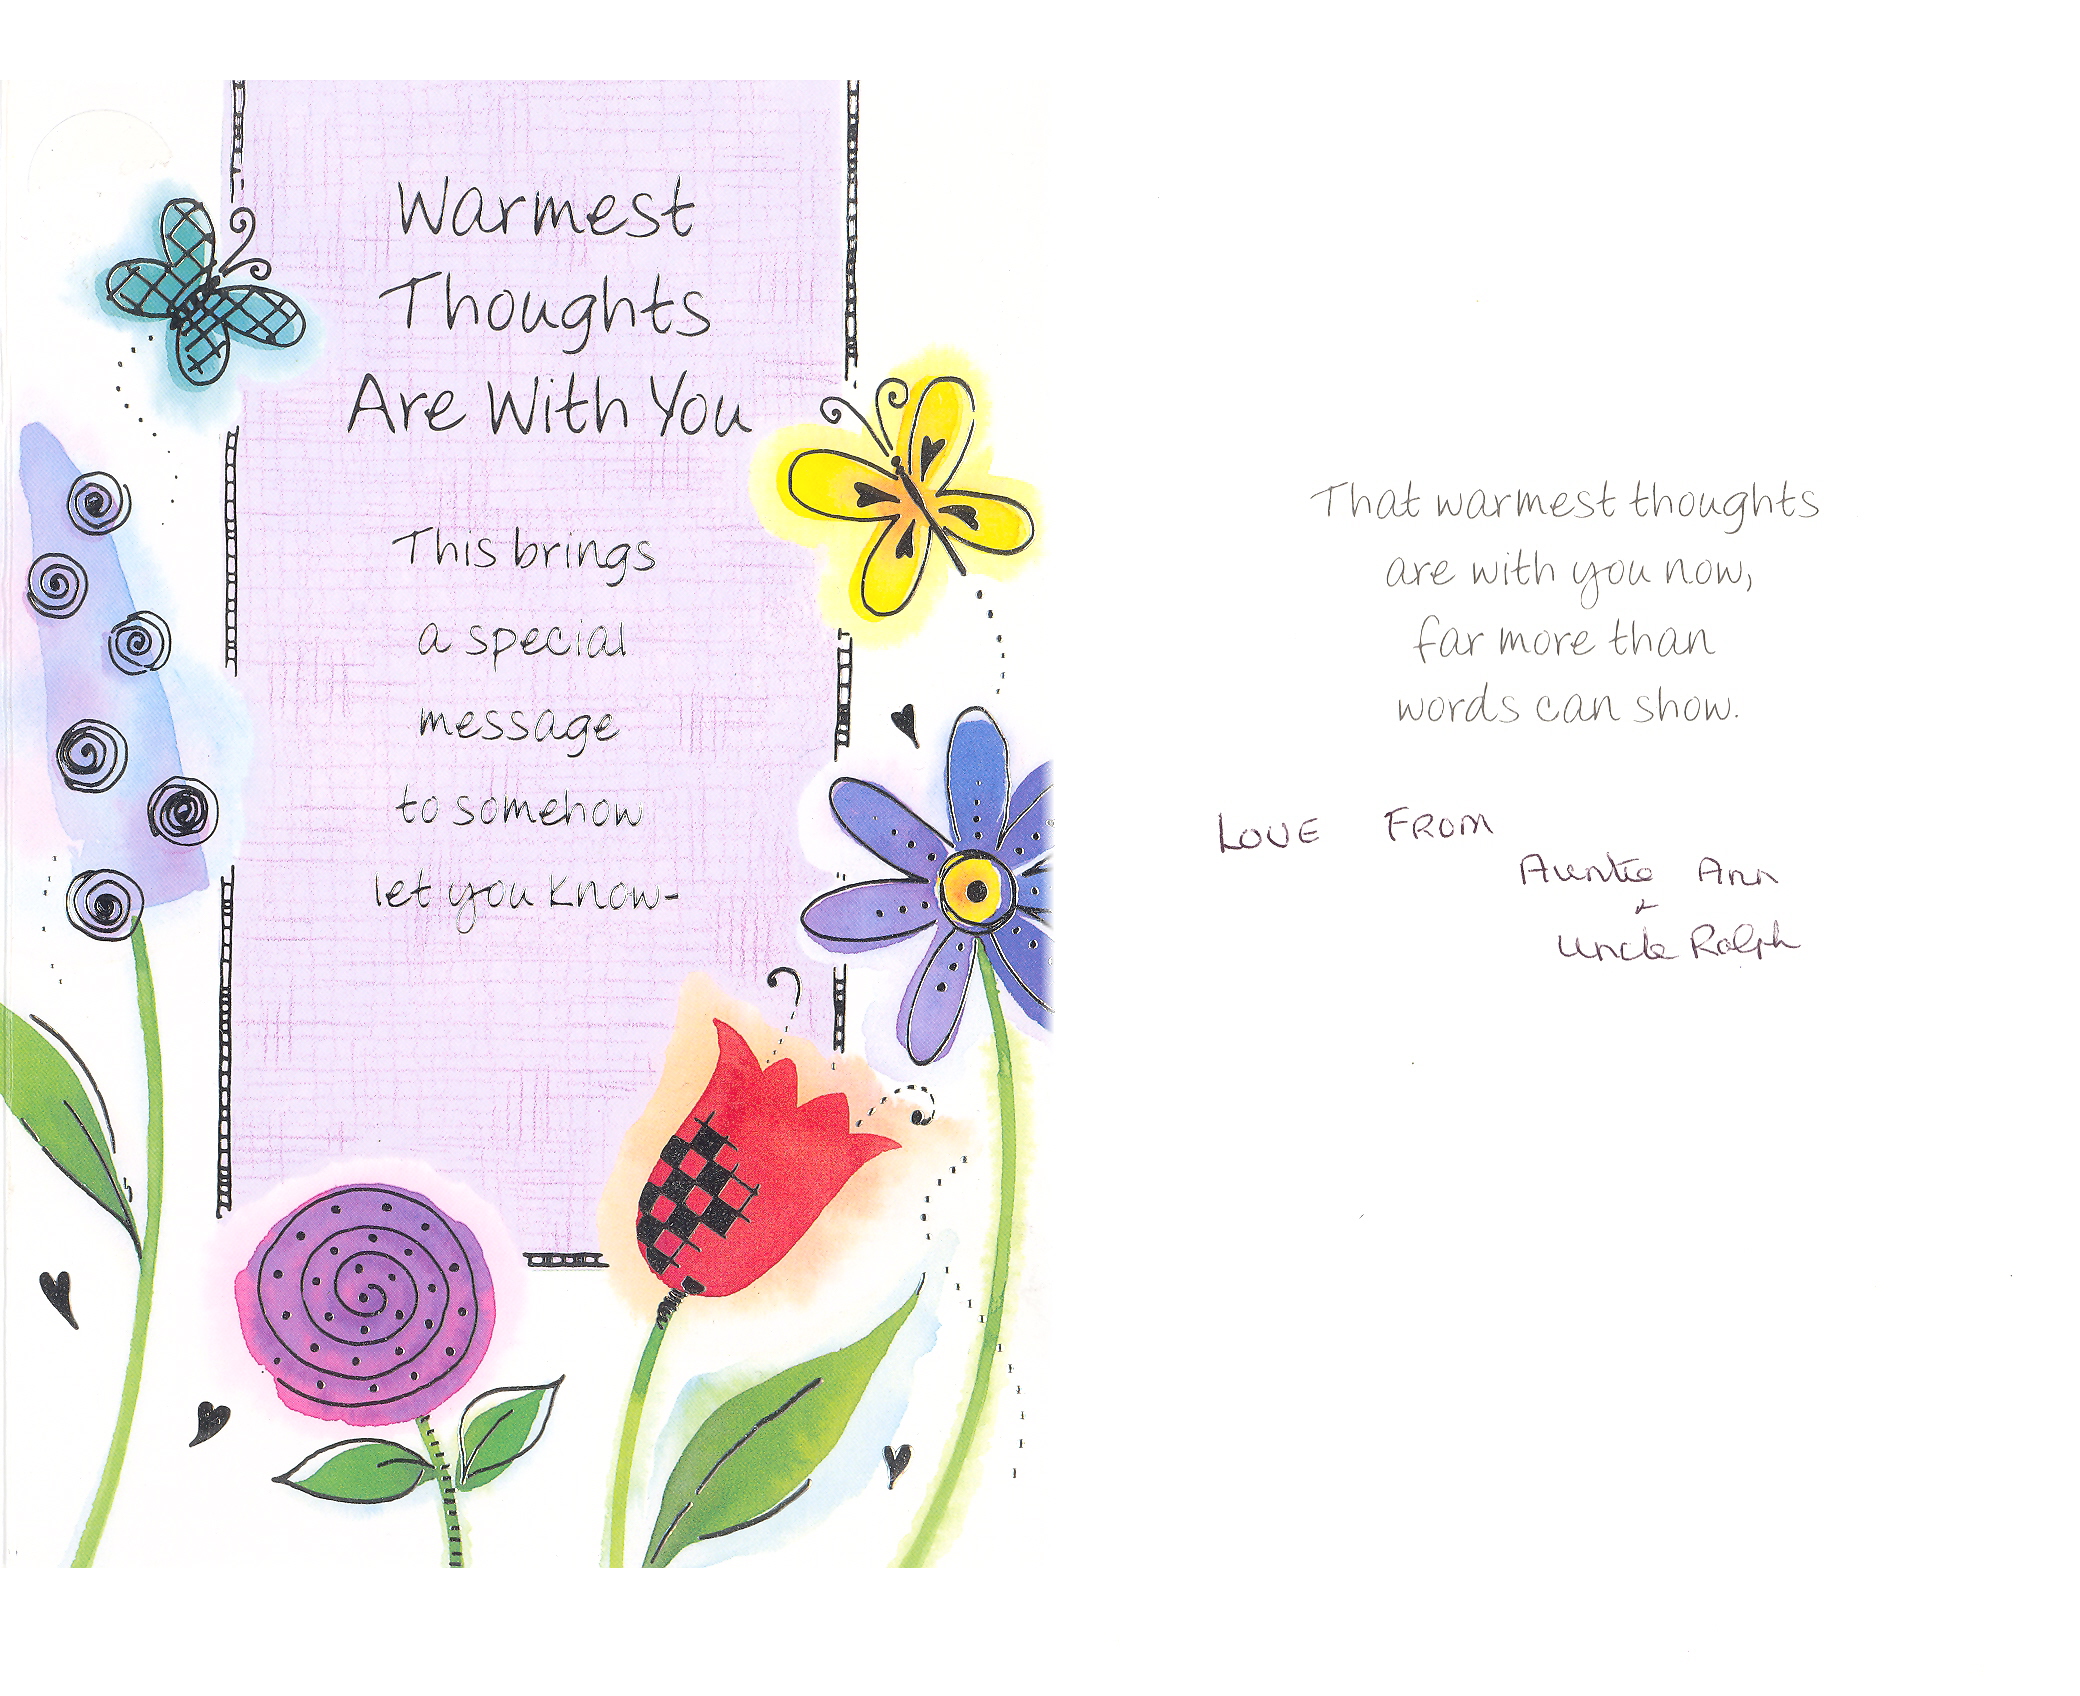 Warmest
Thoughts
Are With You
This brings
a special
message
to somehow
let you know-
That warmest thoughts
are with you now,
far more than
words can show.
LOVE FROM
Auntie Ann
&
Uncle Ralph